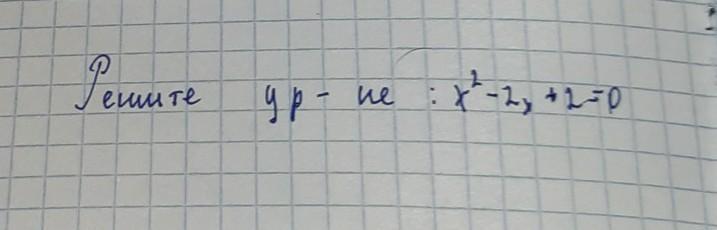 Решите ур-ие : x²-2x+2=0